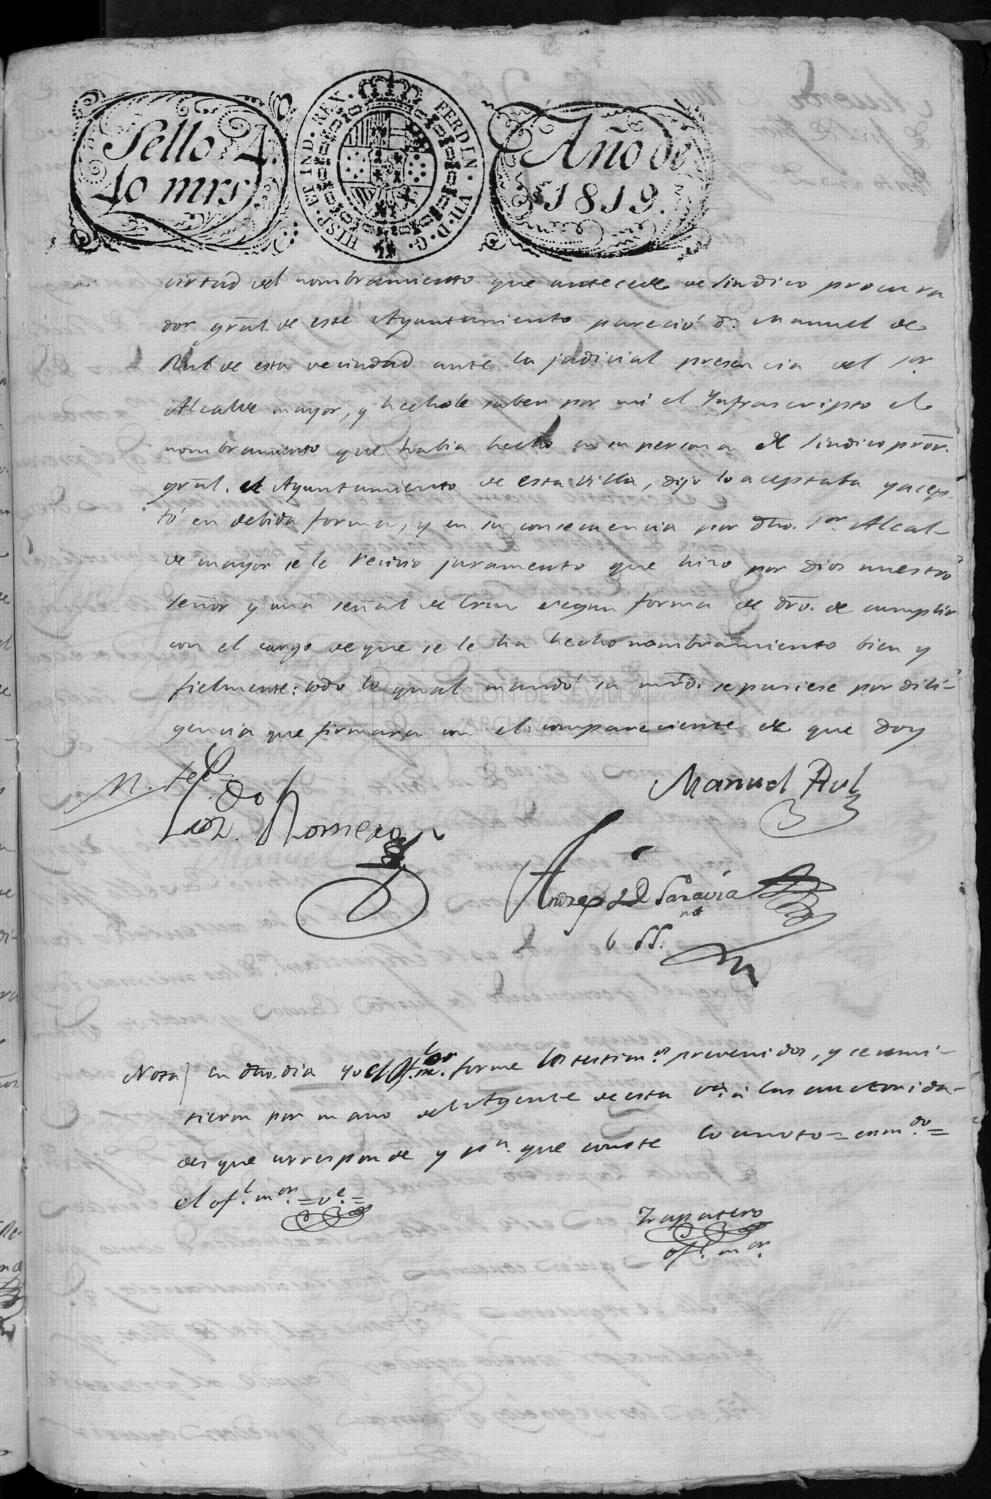 Sello 4.
40 mrs
HISP. ET IND. REX. FERDIN. VII. D. G.
Año de
1819.
virtud del nombramiento que antecede de sindico procura
dor gral. de este Ayuntamiento pareció dn. Manuel de
Rul de esta vecindad ante la judicial presencia del sor.
Alcalde mayor, y hechole saber por mi el Ynfrascripto el
nombramiento que habia hecho en su persona de sindico pror.
gral. el Ayuntamiento de esta villa, dijo lo aceptaba y acep-
tó en debida forma, y en su consecuencia por dho. sor. Alcal-
de mayor se le recivio juramento que hizo por Dios nuestro
señor y una señal de Cruz segun forma de dro. de cumplir
con el cargo de que se le ha hecho nombramiento bien y
fielmente: todo lo qual mandó su mrd. se pusiese por dili-
gencia que firmara con el compareciente de que doy
DIPUTACIÓN DE SEVILLA
ARCHIVO
Manuel Rul
Romero
Andres
Nota) en dho. dia yo el forme los testimos. prevenidos, y se remi-
tieron por mano del Agente de esta va. á las autorida-
des que corresponde y pa. que conste lo anoto = enmdo. =
el ofl. mor. = ve. =
Zapatero
ofl. mor.